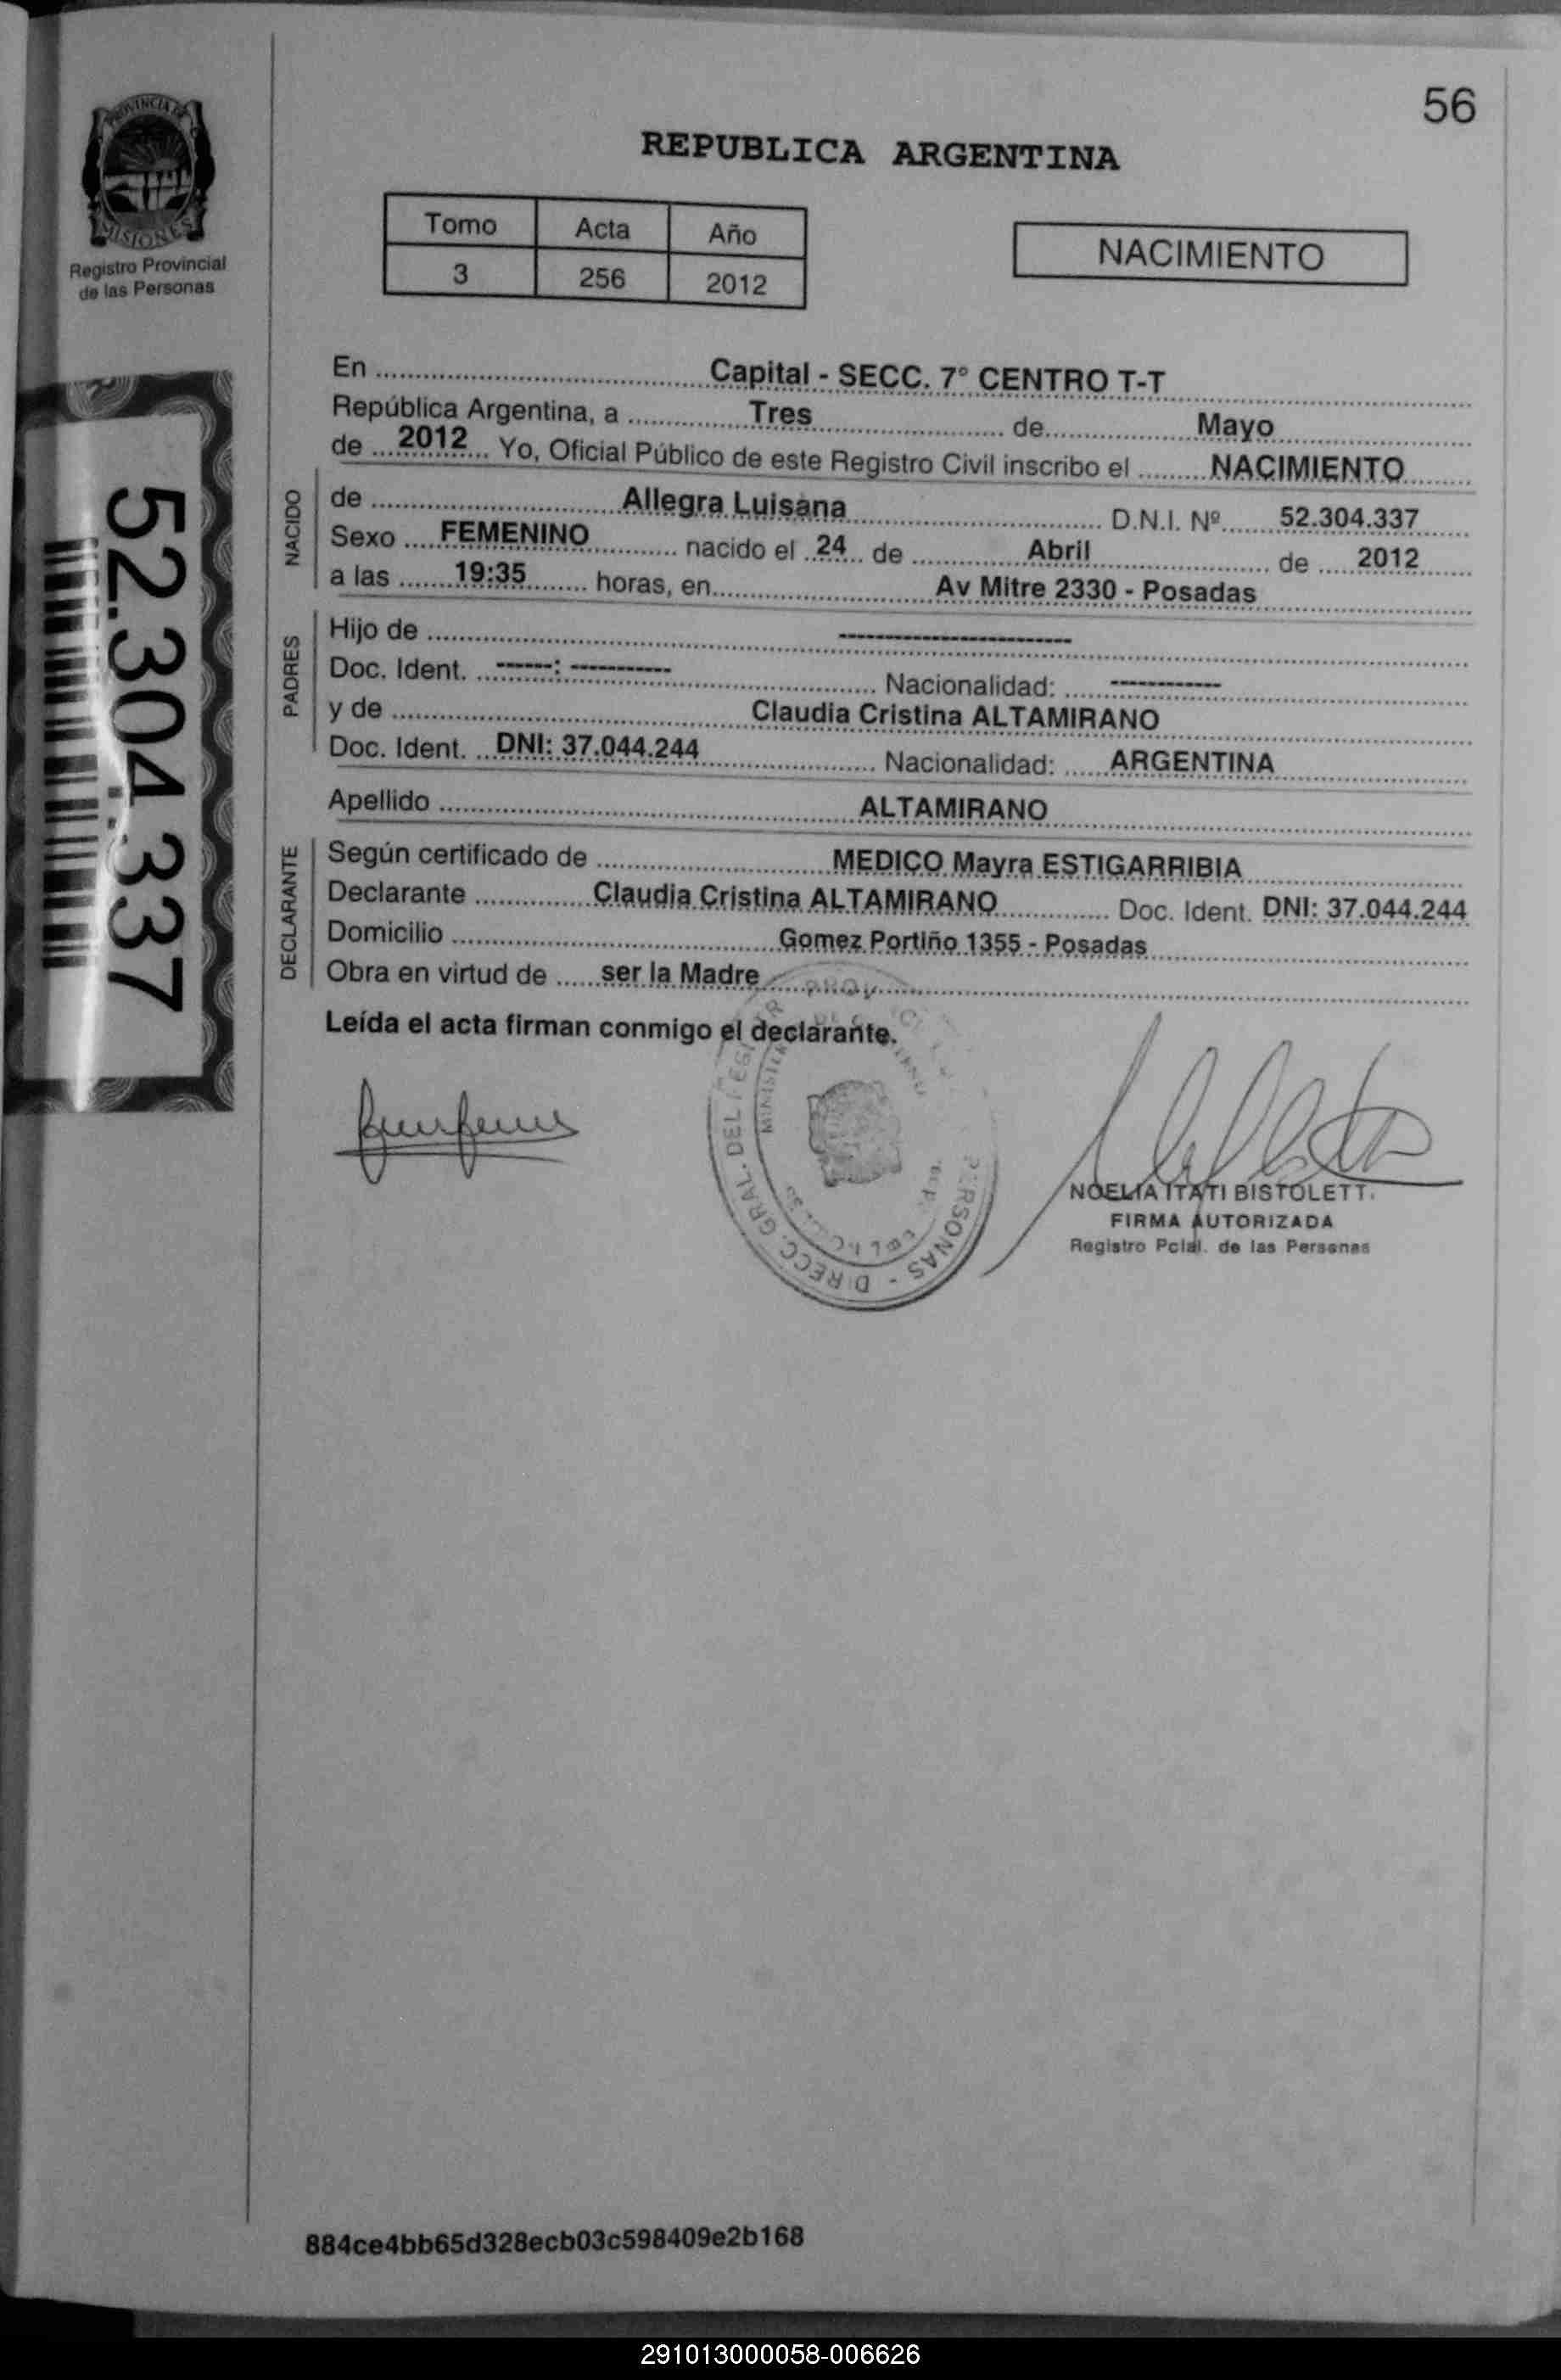 56
PROVINCIA DE
MISIONES
Registro Provincial
de las Personas
REPUBLICA ARGENTINA
Tomo Acta Año
3 256 2012
NACIMIENTO
52.304.337
En Capital - SECC. 7° CENTRO T-T
República Argentina, a Tres de Mayo
de 2012 Yo, Oficial Público de este Registro Civil inscribo el NACIMIENTO
NACIDO
de Allegra Luisana D.N.I. Nº 52.304.337
Sexo FEMENINO nacido el 24 de Abril de 2012
a las 19:35 horas, en Av Mitre 2330 - Posadas
PADRES
Hijo de --------------------
Doc. Ident. -----: ---------- Nacionalidad: ------------
y de Claudia Cristina ALTAMIRANO
Doc. Ident. DNI: 37.044.244 Nacionalidad: ARGENTINA
Apellido ALTAMIRANO
DECLARANTE
Según certificado de MEDICO Mayra ESTIGARRIBIA
Declarante Claudia Cristina ALTAMIRANO Doc. Ident. DNI: 37.044.244
Domicilio Gomez Portiño 1355 - Posadas
Obra en virtud de ser la Madre
Leída el acta firman conmigo el declarante.
PERSONAS - DIRECC. GRAL. DEL
NOELIA ITATI BISTOLETT.
FIRMA AUTORIZADA
Registro Pcial. de las Personas
884ce4bb65d328ecb03c598409e2b168
291013000058-006626